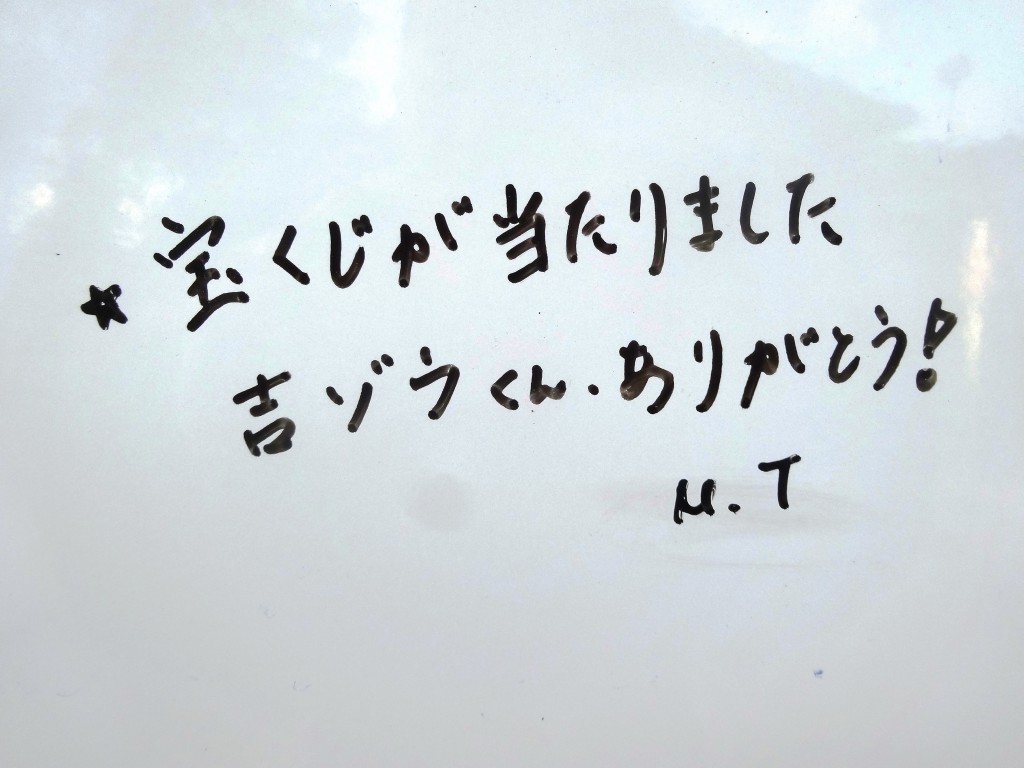 ☆ 宝くじが当たりました
吉ゾウくん.ありがとう!
M.T